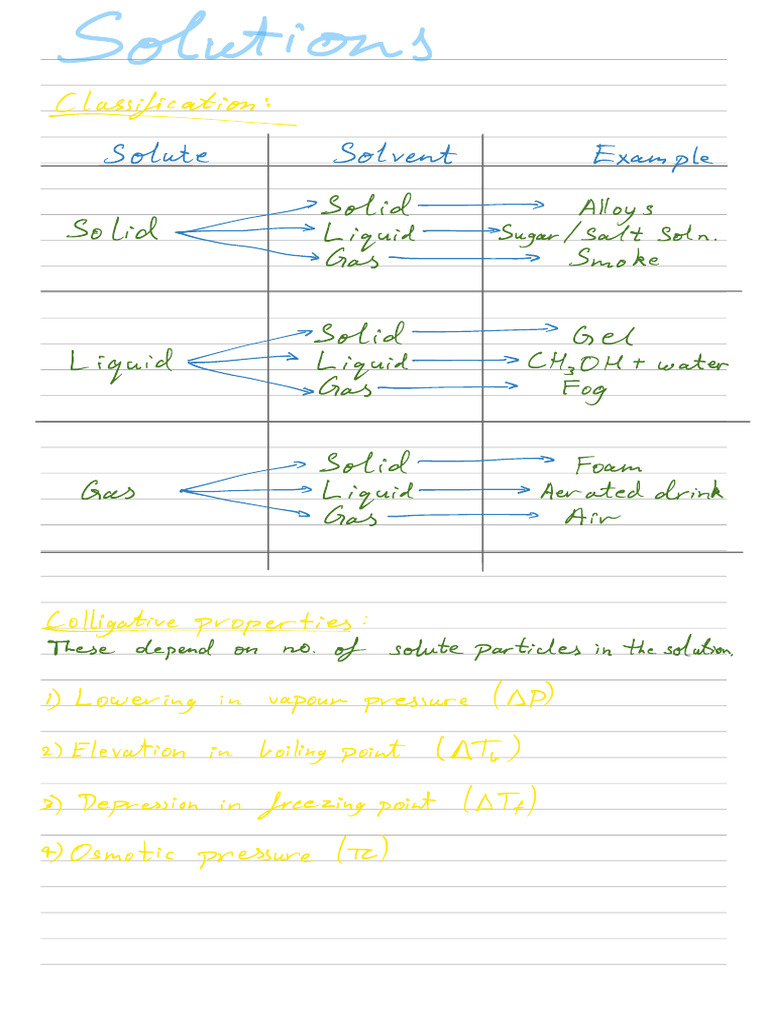 Solutions
Classification:
Solute Solvent Example
Solid → Alloys
Solid Liquid → Sugar/Salt Soln.
Gas → Smoke
Solid → Gel
Liquid Liquid → CH₃OH + water
Gas → Fog
Solid → Foam
Gas Liquid → Aerated drink
Gas → Air
Colligative properties:
These depend on no. of solute particles in the solution.
1) Lowering in vapour pressure (ΔP)
2) Elevation in boiling point (ΔT_b)
3) Depression in freezing point (ΔT_f)
4) Osmotic pressure (π)